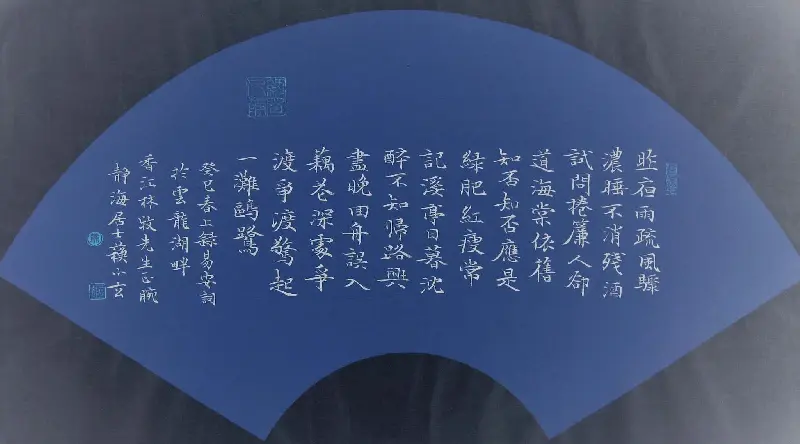 昨夜雨疏風驟
濃睡不消殘酒
試問捲簾人卻
道海棠依舊
知否知否應是
綠肥紅瘦常
記溪亭日暮沈
醉不知歸路興
盡晚回舟誤入
藕花深處爭
渡爭渡驚起
一灘鷗鷺
癸巳春上錄易安詞
於雲龍湖畔
香江林牧先生正腕
靜海居士蘇小玄